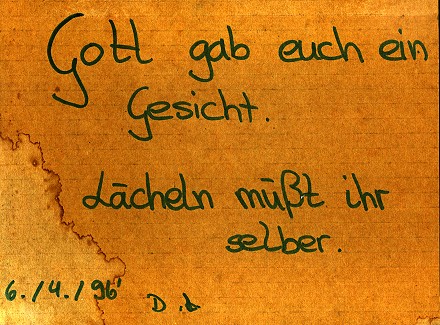 Gott gab euch ein
Gesicht.
Lächeln müßt ihr
selber.
6./4./96'